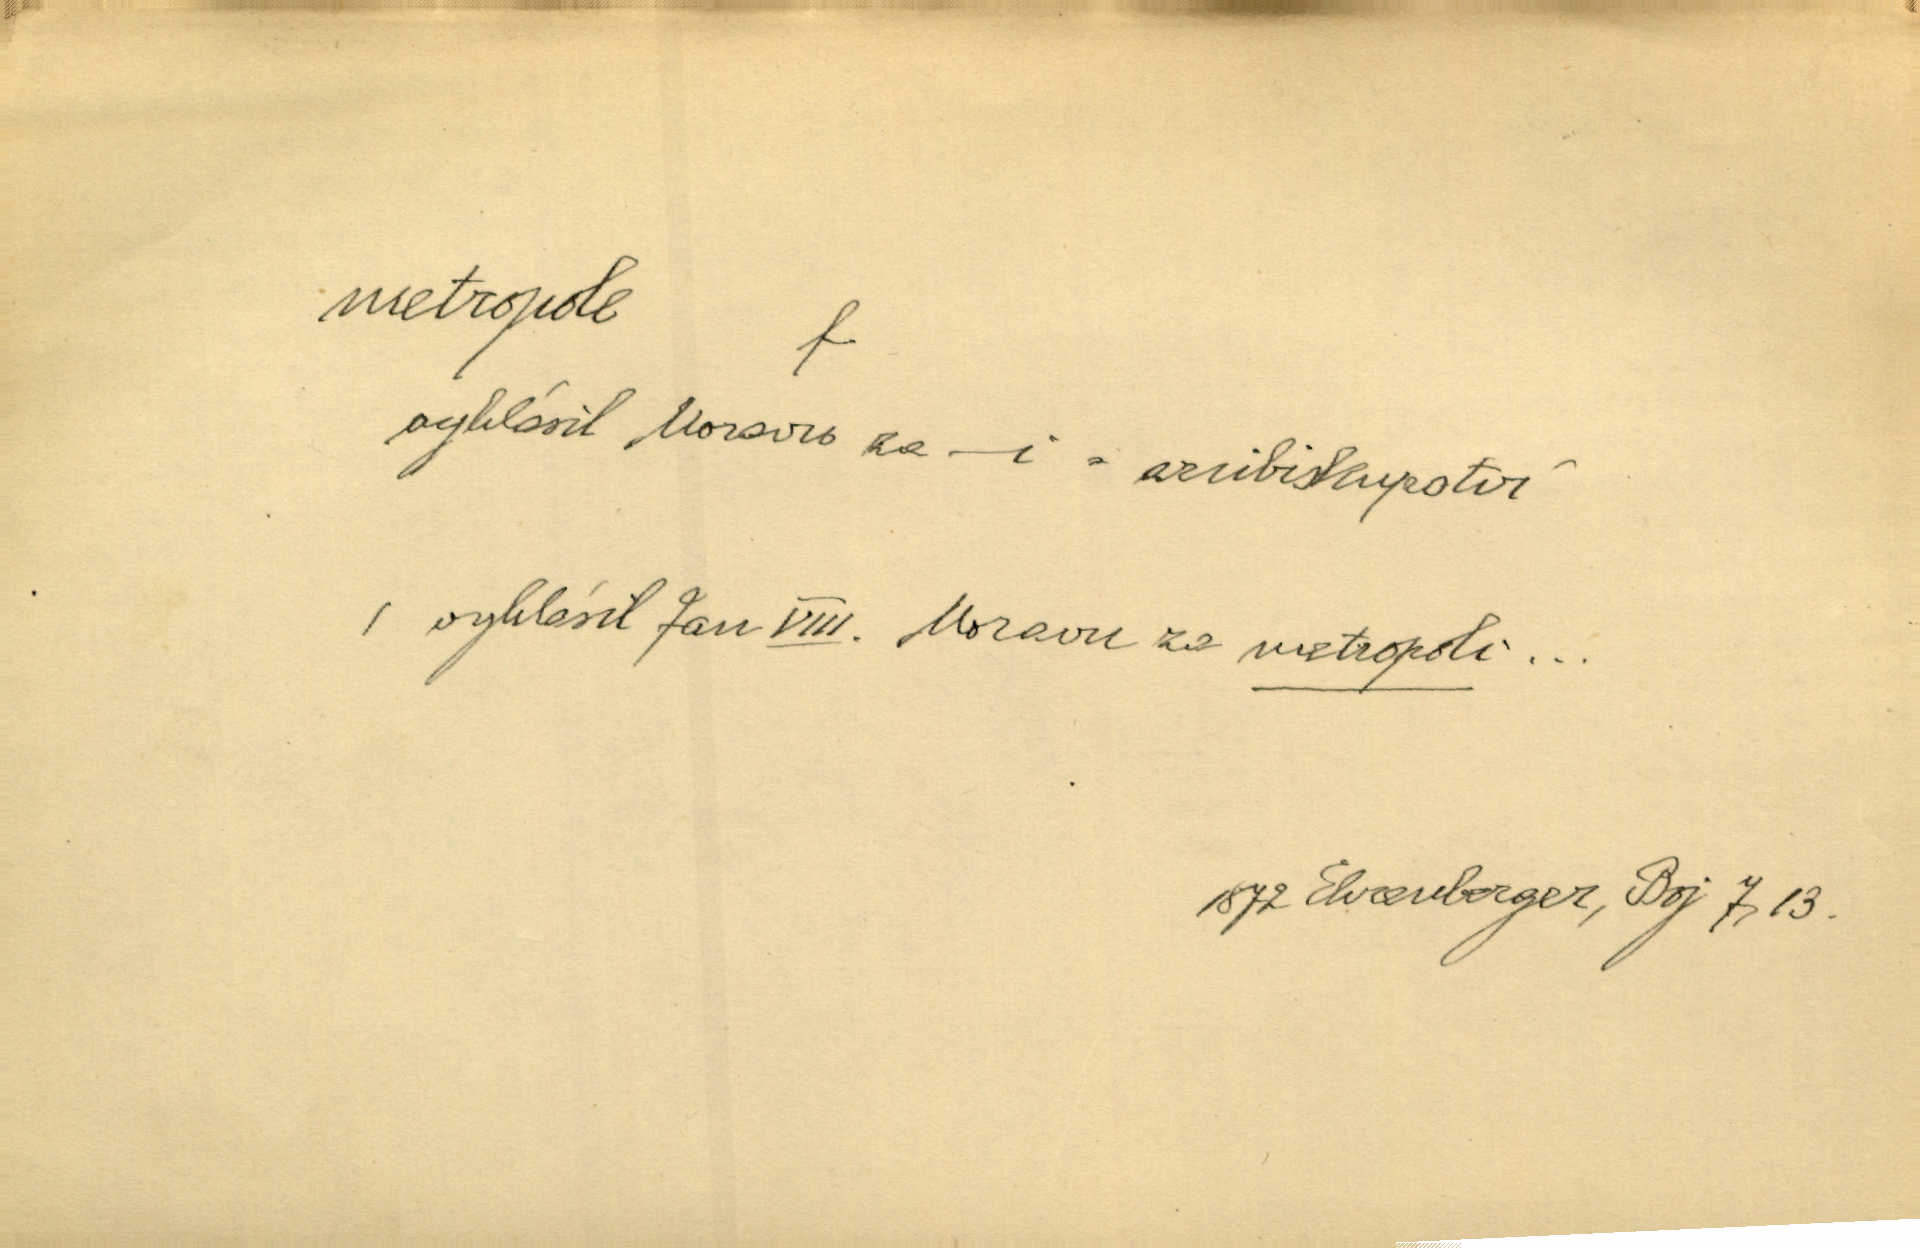 metropole
f
vyhlásil Moravu za —i = arcibiskupství
/ vyhlásil Jan VIII. Moravu za metropoli ...
1872 Ehrenberger, Boj 7, 13.